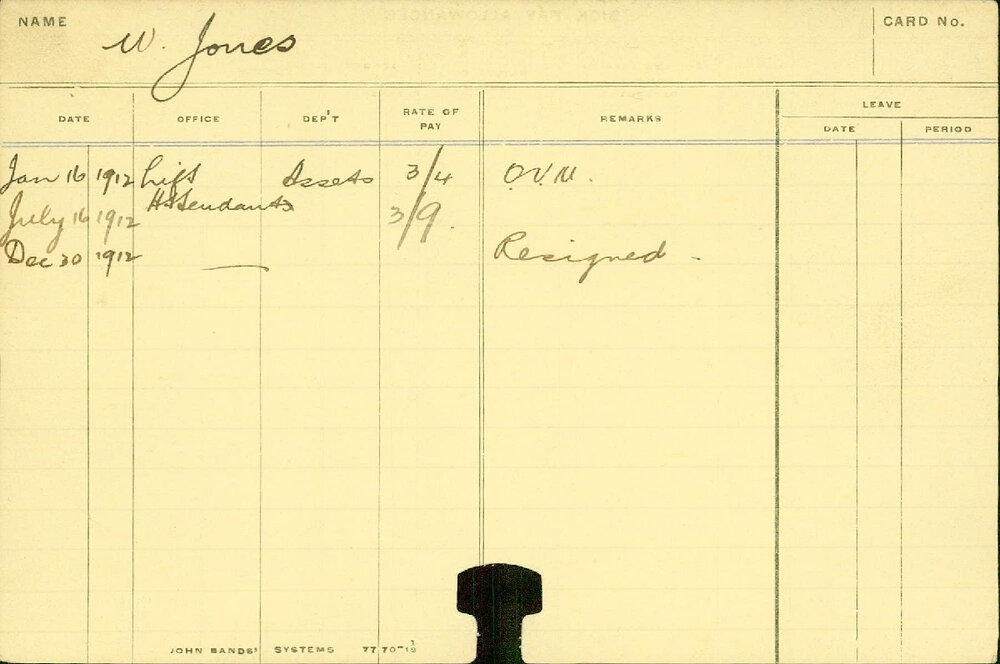 NAME
W. Jones
CARD No.
DATE OFFICE DEP'T RATE OF PAY REMARKS LEAVE
DATE PERIOD
Jan 16 1912 Lift Assets 3/4 O.V.M.
July 16 1912 Attendants 3/9.
Dec 30 1912 — Resigned -
JOHN SANDS' SYSTEMS